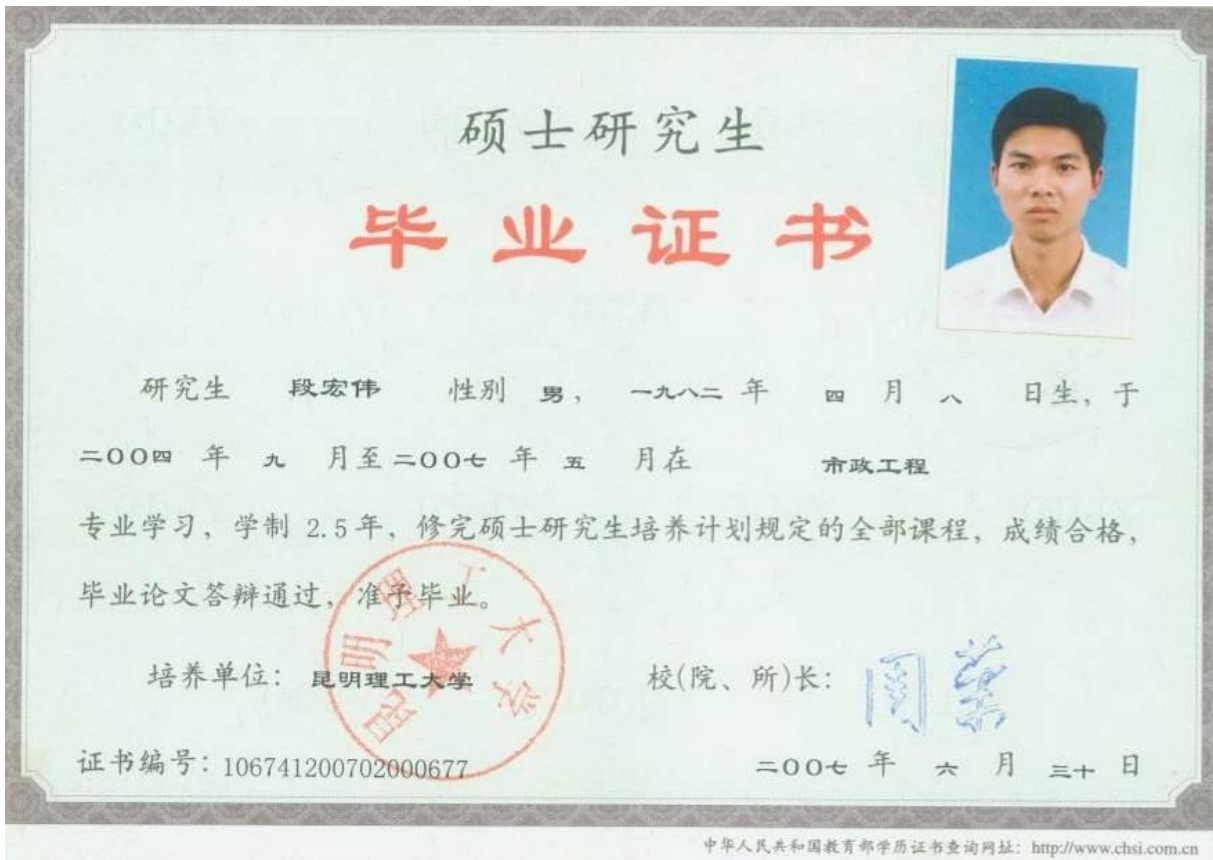 硕士研究生
毕业证书
研究生 段宏伟 性别 男, 一九八二 年 四 月 八 日生, 于
二〇〇四 年 九 月至 二〇〇七 年 五 月在 市政工程
专业学习, 学制 2.5 年, 修完硕士研究生培养计划规定的全部课程, 成绩合格,
毕业论文答辩通过, 准予毕业。
昆明理工大学
培养单位: 昆明理工大学 校(院、所)长: 周荣
证书编号: 106741200702000677 二〇〇七 年 六 月 三十 日
中华人民共和国教育部学历证书查询网址: http://www.chsi.com.cn